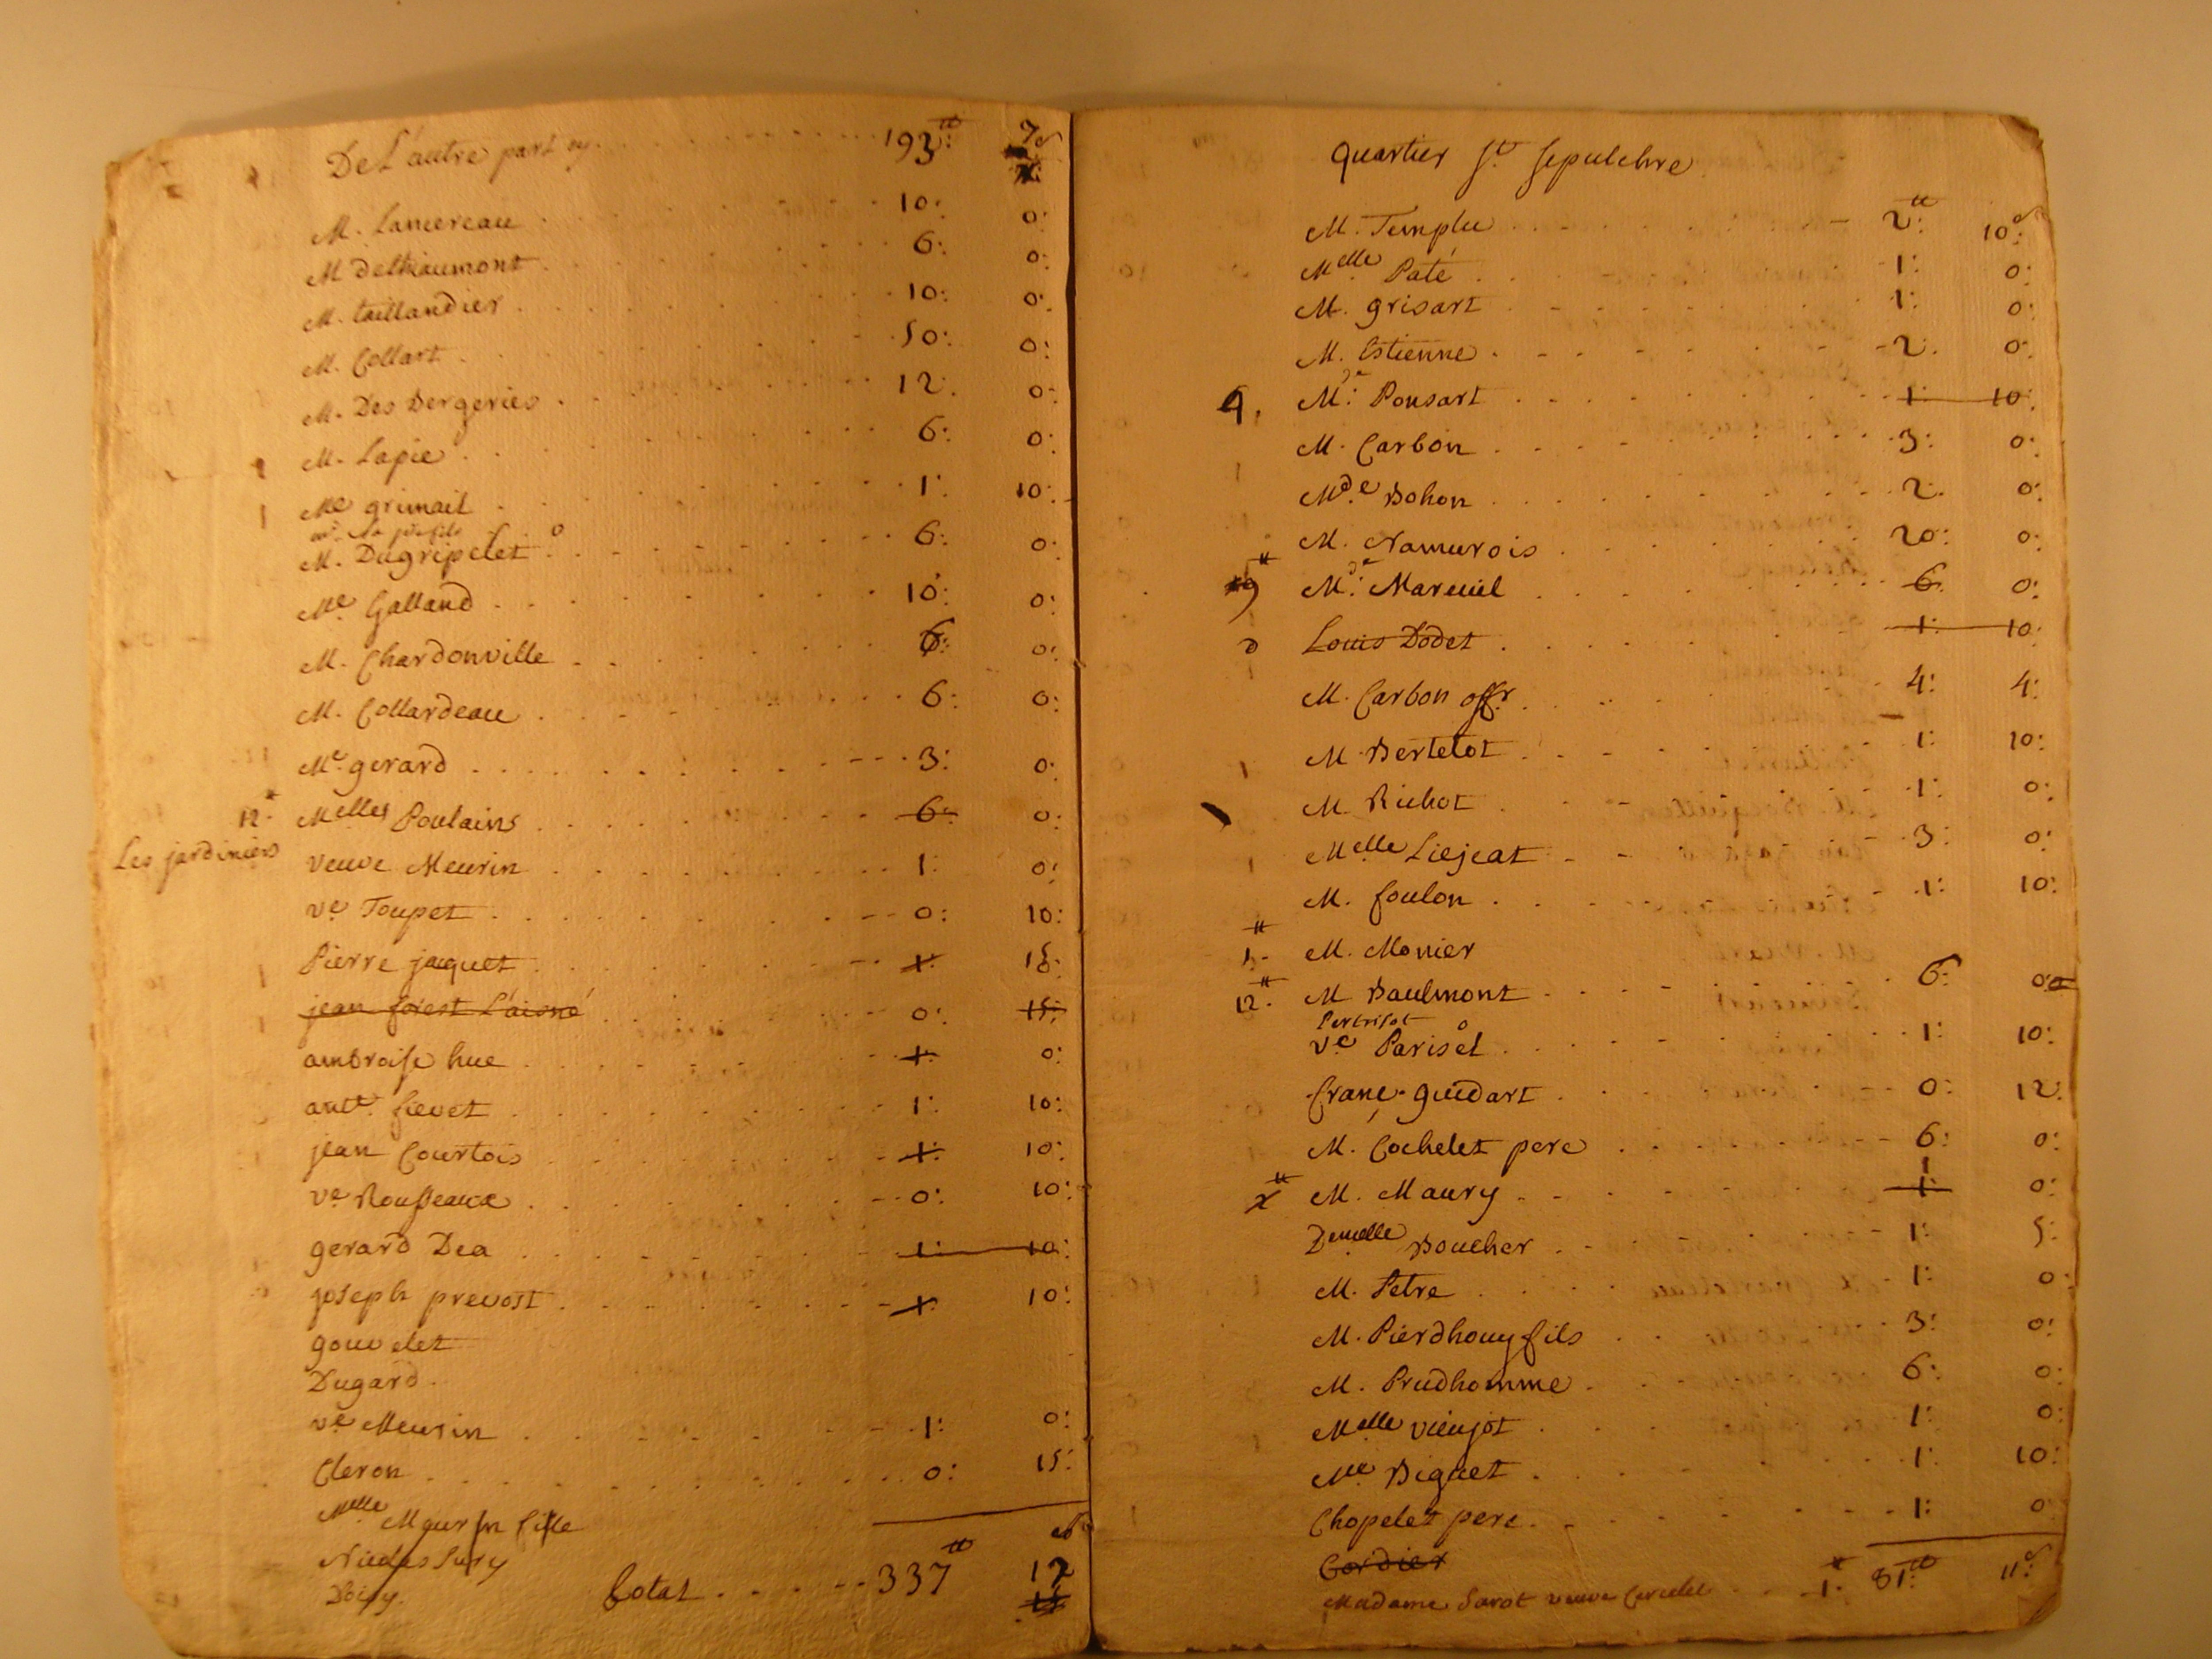 De L'autre part cy 193tt: 7s
M. Lamereau 10: 0:
M dethiaumont 6: 0:
M. taillandier 10: 0:
M. Collart 50: 0:
M. Des Bergeries 12: 0:
M. Lapie 6: 0:
Me grimail 1: 10:
M. Dugripelet 6: 0:
Me Galland 10: 0:
M. Chardonville 6: 0:
M. Collardeau 6: 0:
Me gerard 3: 0:
12tt Melles Poulains 6: 0:
Les jardiniers veuve Meurin 1: 0:
ve Toupet 0: 10:
Pierre jaquet 1: 15:
jean forest L'aisné 0: 15:
ambroise hue 1: 0:
antt. fievet 1: 10:
jean Courtois 1: 10:
ve Rousseaux 0: 10:
gerard Dea 1: 10:
joseph prevost 1: 10:
gouvelet
Dugard
ve Meusin 1: 0:
Cleron 0: 15:
Melle Meurin fille
Nicolas Sury
Doisy.
total 337tt 12
quartier St. sepulchre
M. Templu 2tt: 10s:
Melle Paté 1: 0:
M. grisart 1: 0:
M. Estienne 2: 0:
9. Mde Ponsart 1: 10:
M. Carbon 3: 0:
Mde Bohon 2: 0:
M. Namurois 20: 0:
9tt Mde Mareuil 6: 0:
Louis Dodet 1: 10:
M. Carbon offr. 4: 4:
M. Bertelot 1: 10:
M. Richot 1: 0:
Melle Liejeat 3: 0:
M. foulon 1: 10:
1tt M. Monier
12tt M Baulmont 6: 0:
Pertrisot
ve Parisel 1: 10:
franc. guidart 0: 12:
M. Cochelet pere 6: 0:
M. Maury 1: 0:
Demelle Boucher 1: 5:
M. Petre 1: 0:
M. Pierdhouy fils 3: 0:
M. Prudhomme 6: 0:
Melle vieujot 1: 0:
Me Biguet 1: 10:
Chopelet pere 1: 0
Cordier
Madame Sarot veuve 1tt 81tt: 11s: